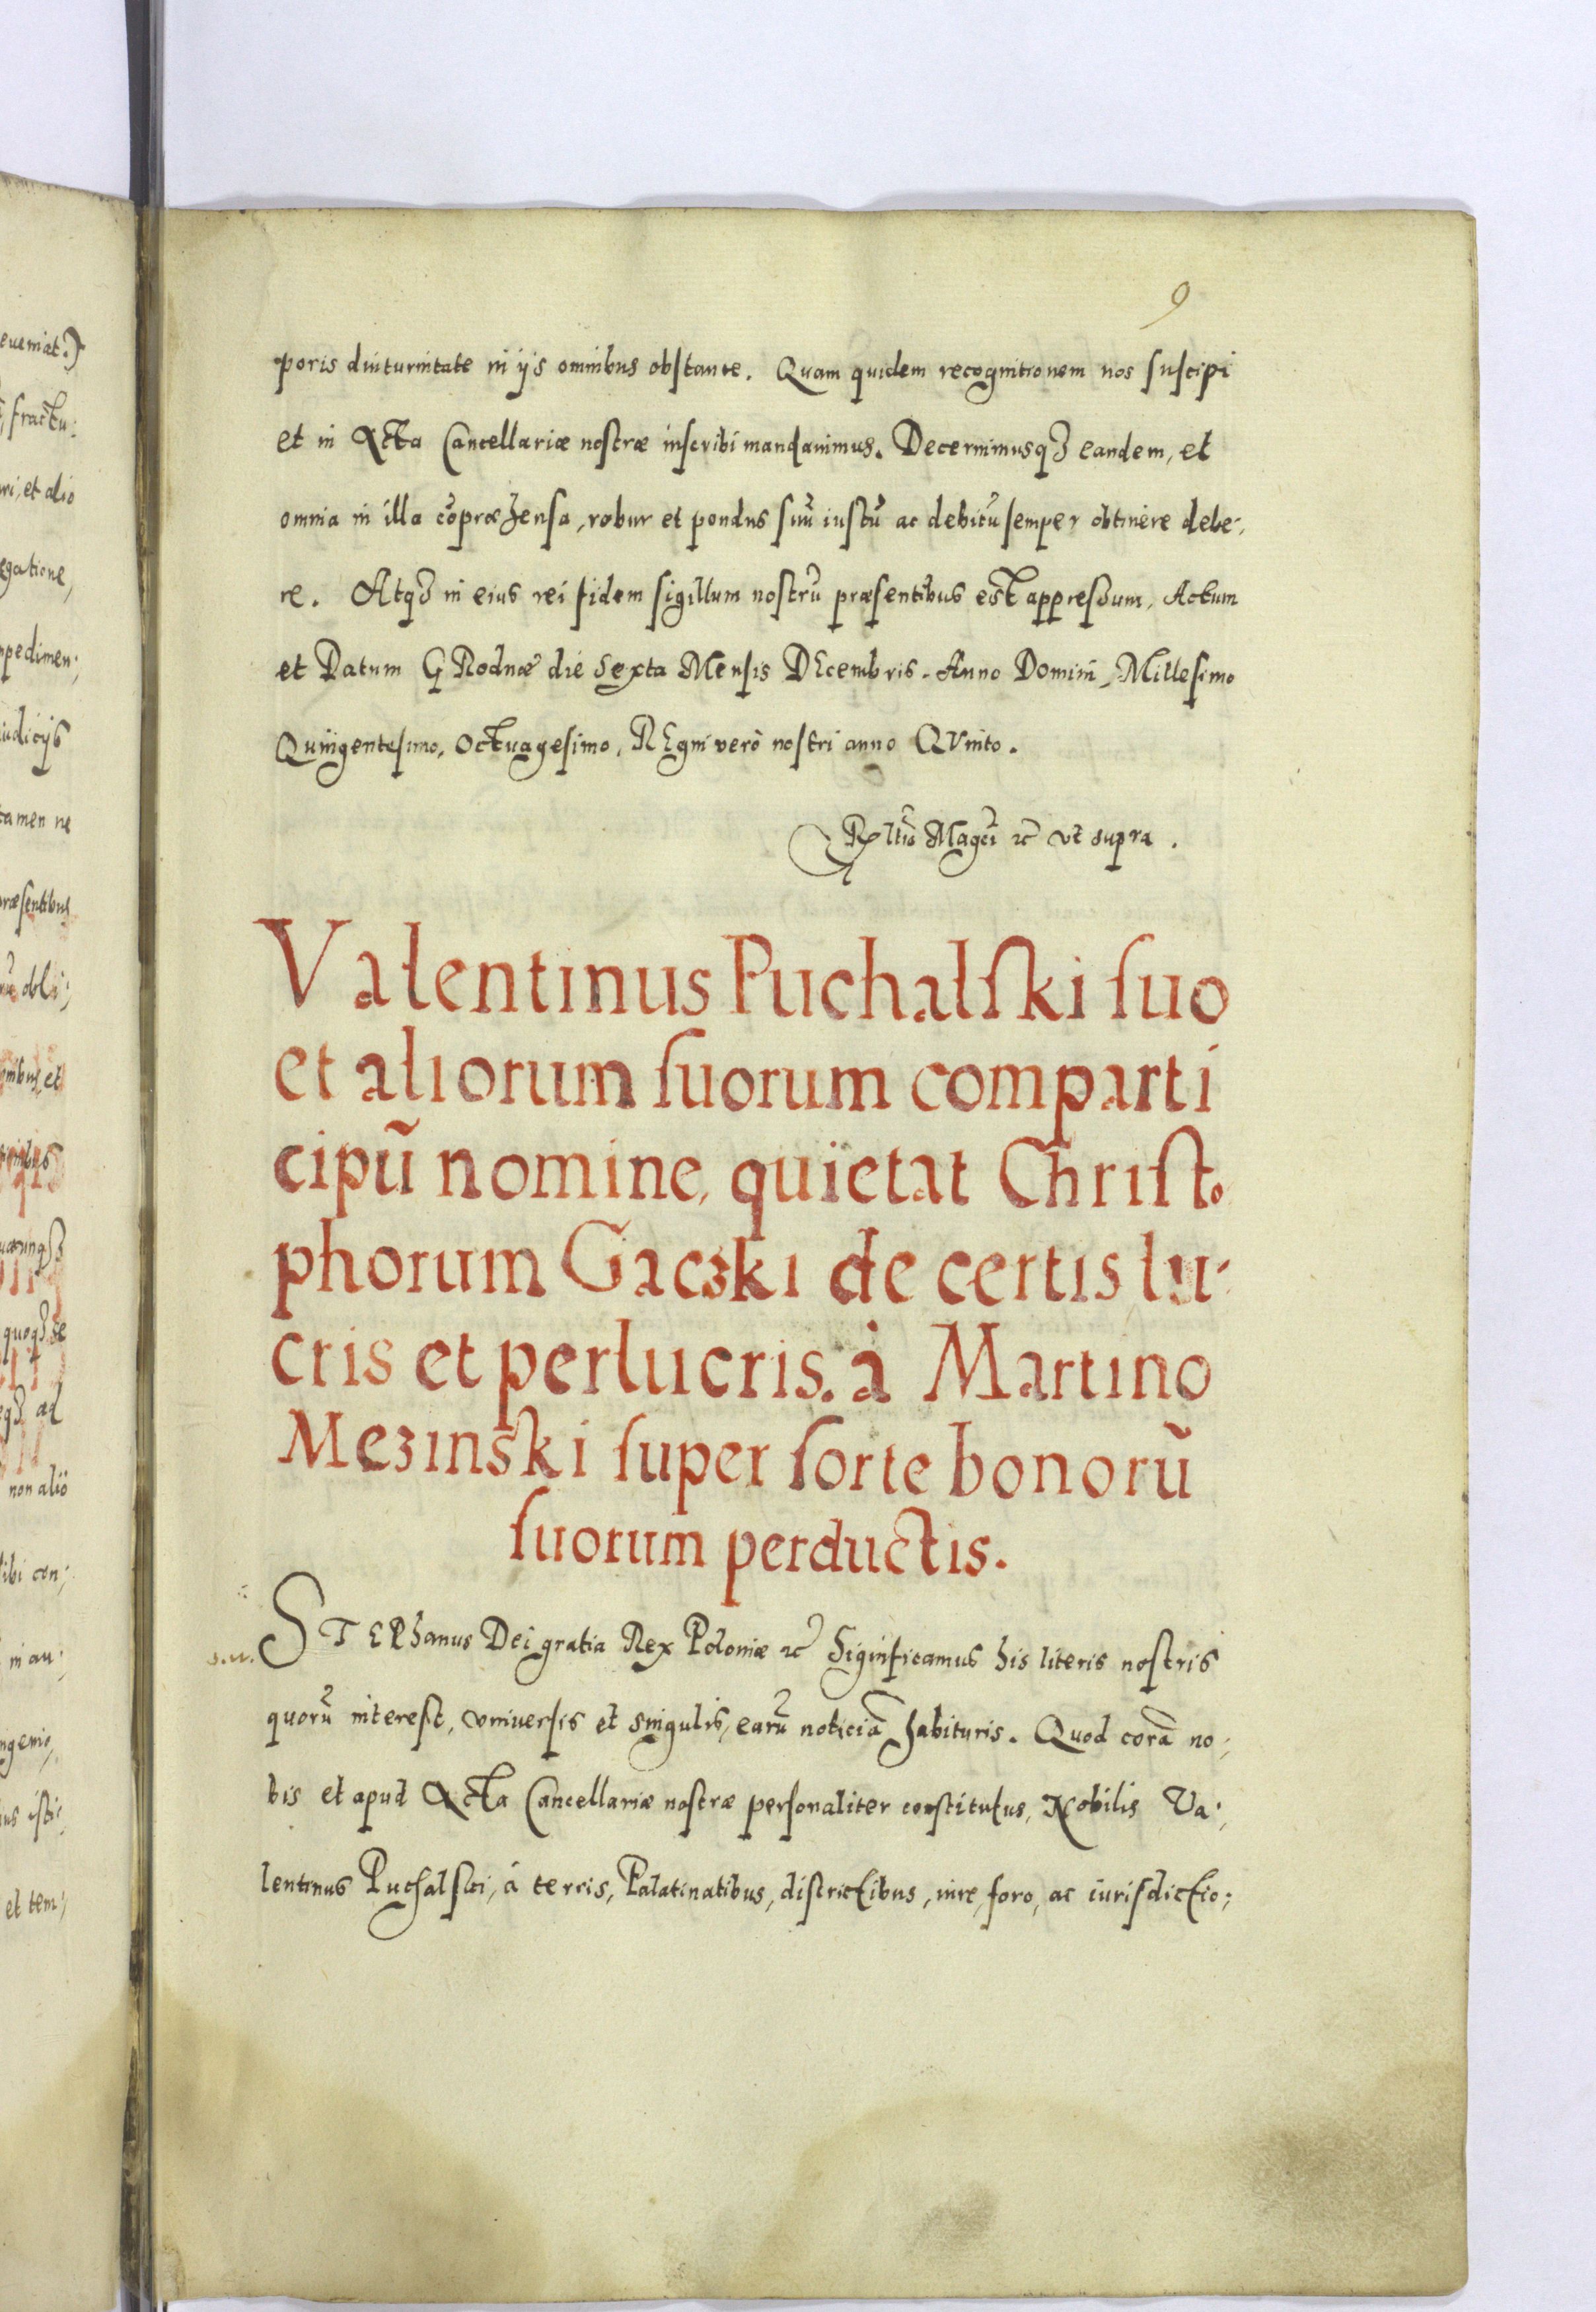 9
poris diuturnitate in ijs omnibus obstante. Quam quidem recognitionem nos suscipi
et in Acta Cancellariæ nostræ inscribi mandauimus. Decernimusq₃ eandem, et
omnia in illa cōpræhensa, robur et pondus suū iustū ac debitū semper obtinere debe:
re. Atq₃ in eius rei fidem sigillum nostrū præsentibus est appressum, Actum
et Datum GRodnæ die sexta Mensis DEcembris. Anno Domini, Millesimo
Quingentesimo, octuagesimo, REgni verò nostri anno QVinto.
Rltio Magci ꝛc̃ vt supra.
Valentinus Puchalſki ſuo
et aliorum ſuorum comparti
cipũ nomine, quietat Chriſto
phorum Gaczki de certis lu:
cris et perlucris. à Martino
Mezinski ſuper ſorte bonorũ
ſuorum perductis.
s.n. STEPhanus Dei gratia Rex Poloniæ ꝛc̃ Significamus his literis nostris
quorũ interest, vniuersis et singulis, earũ noticiã habituris. Quod corã no:
bis et apud Acta Cancellariæ nostræ personaliter constitutus, Nobilis Va:
lentinus Puchalski, á terris, Palatinatibus, districtibus, iure, foro, ac iurisdictio:
eueniat.)
fractu:
ri, et alio
egatione,
mpedimen:
iudicijs
tamen ne
præsentibus
obli:
omnibus, et
quoq₃ se
ad
non alio
sibi con:
in au:
ingenio,
et tem: